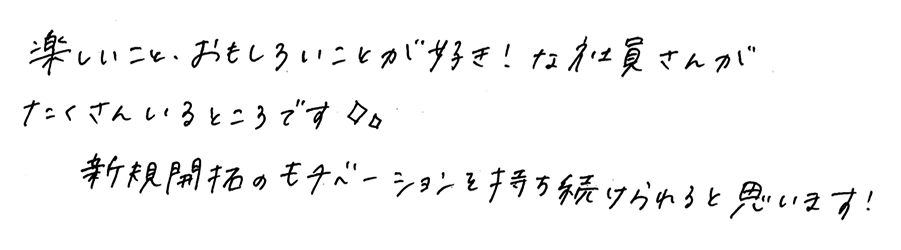 楽しいこと、おもしろいことが好き!な社員さんが
たくさんいるところです◇◇
新規開拓のモチベーションを持ち続けられると思います!